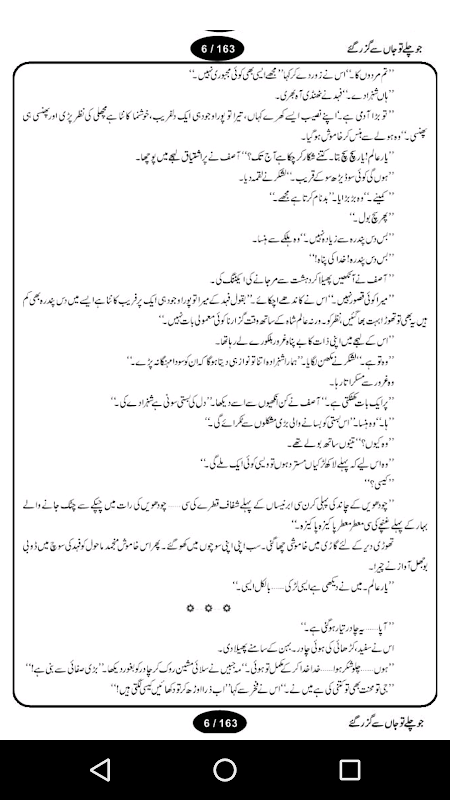 جو چلے تو جاں سے گزر گئے
6 / 163
’’تم مردوں کا۔‘‘ اس نے زور دے کر کہا ’’مجھے ایسی بھی کوئی مجبوری نہیں۔‘‘
’’ہاں شہزادے۔‘‘ فہد نے ٹھنڈی آہ بھری۔
’’تو بڑا آدمی ہے۔ اپنے نصیب ایسے کھرے کہاں، تیرا تو پورا وجود ہی ایک دلفریب، خوشنما کانٹا ہے مچھلی کی نظر پڑی اور پھنسی ہی
پھنسی۔‘‘ وہ ہولے سے ہنس کر خاموش ہو گیا۔
’’یار عالم! یار سچ سچ بتا۔ کتنے شکار کر چکا ہے آج تک؟‘‘ آصف نے پر اشتیاق لہجے میں پوچھا۔
’’ہوں گی کوئی سو ڈیڑھ سو کے قریب۔‘‘ لشکر نے لقمہ دیا۔
’’کمینے۔‘‘ وہ بڑبڑایا۔ ’’بدنام کرتا ہے مجھے۔‘‘
’’پھر سچ بول۔‘‘
’’بس دس پندرہ سے زیادہ نہیں۔‘‘ وہ ہلکے سے ہنسا۔
’’بس دس پندرہ! خدا کی پناہ!‘‘
آصف نے آنکھیں پھیلا کر دہشت سے مر جانے کی ایکٹنگ کی۔
’’میرا کوئی قصور نہیں۔‘‘ اس نے کاندھے اچکائے۔ ’’بقول فہد کے میرا تو پورا وجود ہی ایک پر فریب کانٹا ہے ایسے میں دس پندرہ بھی کم
ہیں یہ بھی تو تھوڑا بہت بھا گئیں نظر کو۔ ورنہ عالم شاہ کے ساتھ وقت گزارنا کوئی معمولی بات نہیں۔‘‘
اس کے لہجے میں اپنی ذات کا بے پناہ غرور ہلکورے لے رہا تھا۔
’’وہ تو ہے۔‘‘ لشکر نے مکھن لگایا۔ ’’ہمارا شہزادہ اتنا تو نواز ہی دیتا ہوگا کہ ان کو سودا مہنگا نہ پڑے۔‘‘
وہ غرور سے مسکراتا رہا۔
’’پر ایک بات کھٹکتی ہے۔‘‘ آصف نے کن انکھیوں سے اسے دیکھا۔ ’’دل کی بستی سونی ہے شہزادے کی۔‘‘
’’ہا۔‘‘ وہ ہنسا۔ ’’اس بستی کو بسانے والی بڑی مشکلوں سے ٹکرائے گی۔‘‘
’’وہ کیوں؟‘‘ تینوں ساتھ بولے تھے۔
’’وہ اس لیے کہ پہلے لاکھ لڑکیاں مسترد ہوں تو ویسی کوئی ایک ملے گی۔‘‘
’’کیسی؟‘‘
’’چودھویں کے چاند کی پہلی کرن سی ابر نیساں کے پہلے شفاف قطرے کی سی...... چودھویں کی رات میں چپکے سے چٹک جانے والے
بہار کے پہلے غنچے کی سی معطر معطر پاکیزہ پاکیزہ۔‘‘
تھوڑی دیر کے لئے گاڑی میں خاموشی چھا گئی۔ سب اپنی اپنی سوچوں میں کھو گئے۔ پھر اس خاموش منجمد ماحول کو فہد کی سوچ میں ڈوبی
بوجھل آواز نے چیرا۔
’’یار عالم۔ میں نے دیکھی ہے ایسی لڑکی...... بالکل ایسی۔‘‘
’’آپا...... یہ چادر تیار ہو گئی ہے۔‘‘
اس نے سفید، کڑھائی کی ہوئی چادر۔ بہن کے سامنے پھیلا دی۔
’’ہوں...... چلو شکر ہوا...... خدا خدا کر کے مکمل تو ہوئی۔‘‘ مہ جبیں نے سلائی مشین روک کر چادر کو بغور دیکھا۔ ’’بڑی صفائی سے بنی ہے!‘‘
’’جی تو محنت بھی تو کتنی کی ہے میں نے۔‘‘ اس نے فخر سے کہا ’’اب ذرا اوڑھ کر تو دکھائیں کیسی لگتی ہیں!‘‘
جو چلے تو جاں سے گزر گئے
6 / 163